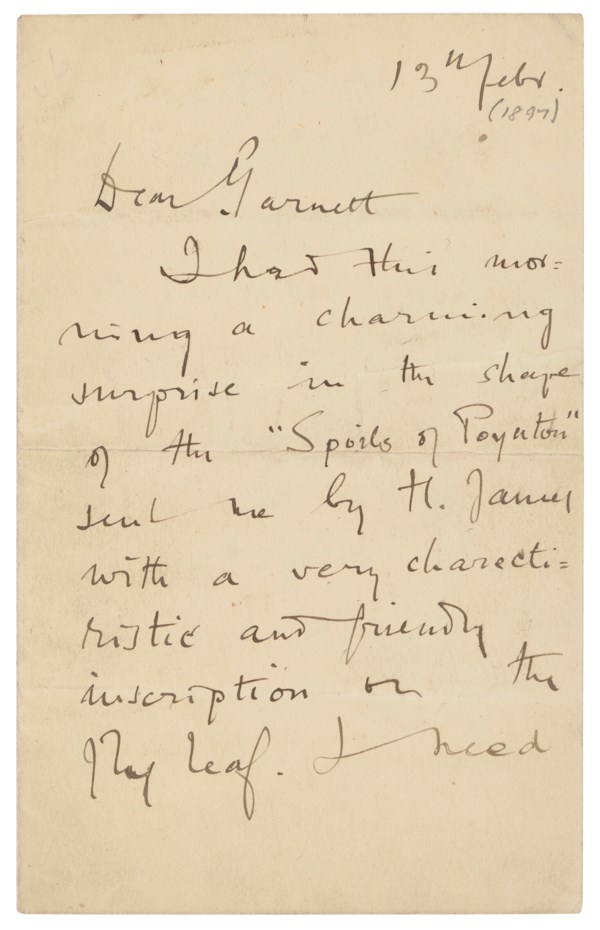 13th Febr.
(1897)
Dear Garnett
I had this mor=
ning a charming
surprise in the shape
of the "Spoils of Poynton"
sent me by H. James
with a very charecti=
ristic and friendly
inscription on the
fly leaf. I need